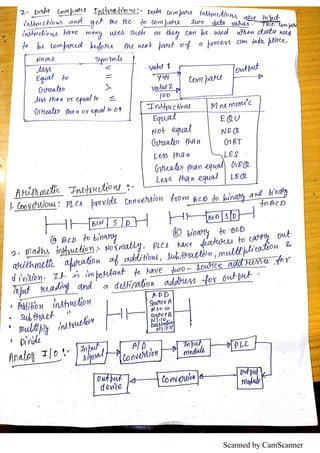 2. Data Compare Instructions:- Data compare instructions use input
instructions and get the PLC to compare two data values. The compare
instructions have many uses such as they can be used when data need
to be compared before the next part of a process can take place.
Name Symbols
less <
Equal to =
Greater >
less than or equal to ≤
Greater than or equal to ≥
value 1
444
value 2
100
Compare
output
Instructions Mnemonic
Equal EQU
Not equal NEQ
Greater than GRT
Less than LES
Greater than equal GEQ
Less than equal LEQ
Arithmetic Instructions:-
1. Conversions: PLCs provide conversion from BCD to binary and binary
to BCD
BIN S D
BCD S D
ⓐ BCD to binary
ⓑ binary to BCD
2. Maths instruction:- Normally, PLCs have features to carry out
arithmetic operation of additions, subtraction, multiplication &
division. It is important to have two-source addresses for
Input reading and a destination address for output.
• Addition instruction
• subtract "
• multiply instruction
• Divide
ADD
Source A
Source B
Destination
Analog I/O:-
Input signal
A/D Conversion
Input module
PLC
output module
Conversion
output device
Scanned by CamScanner